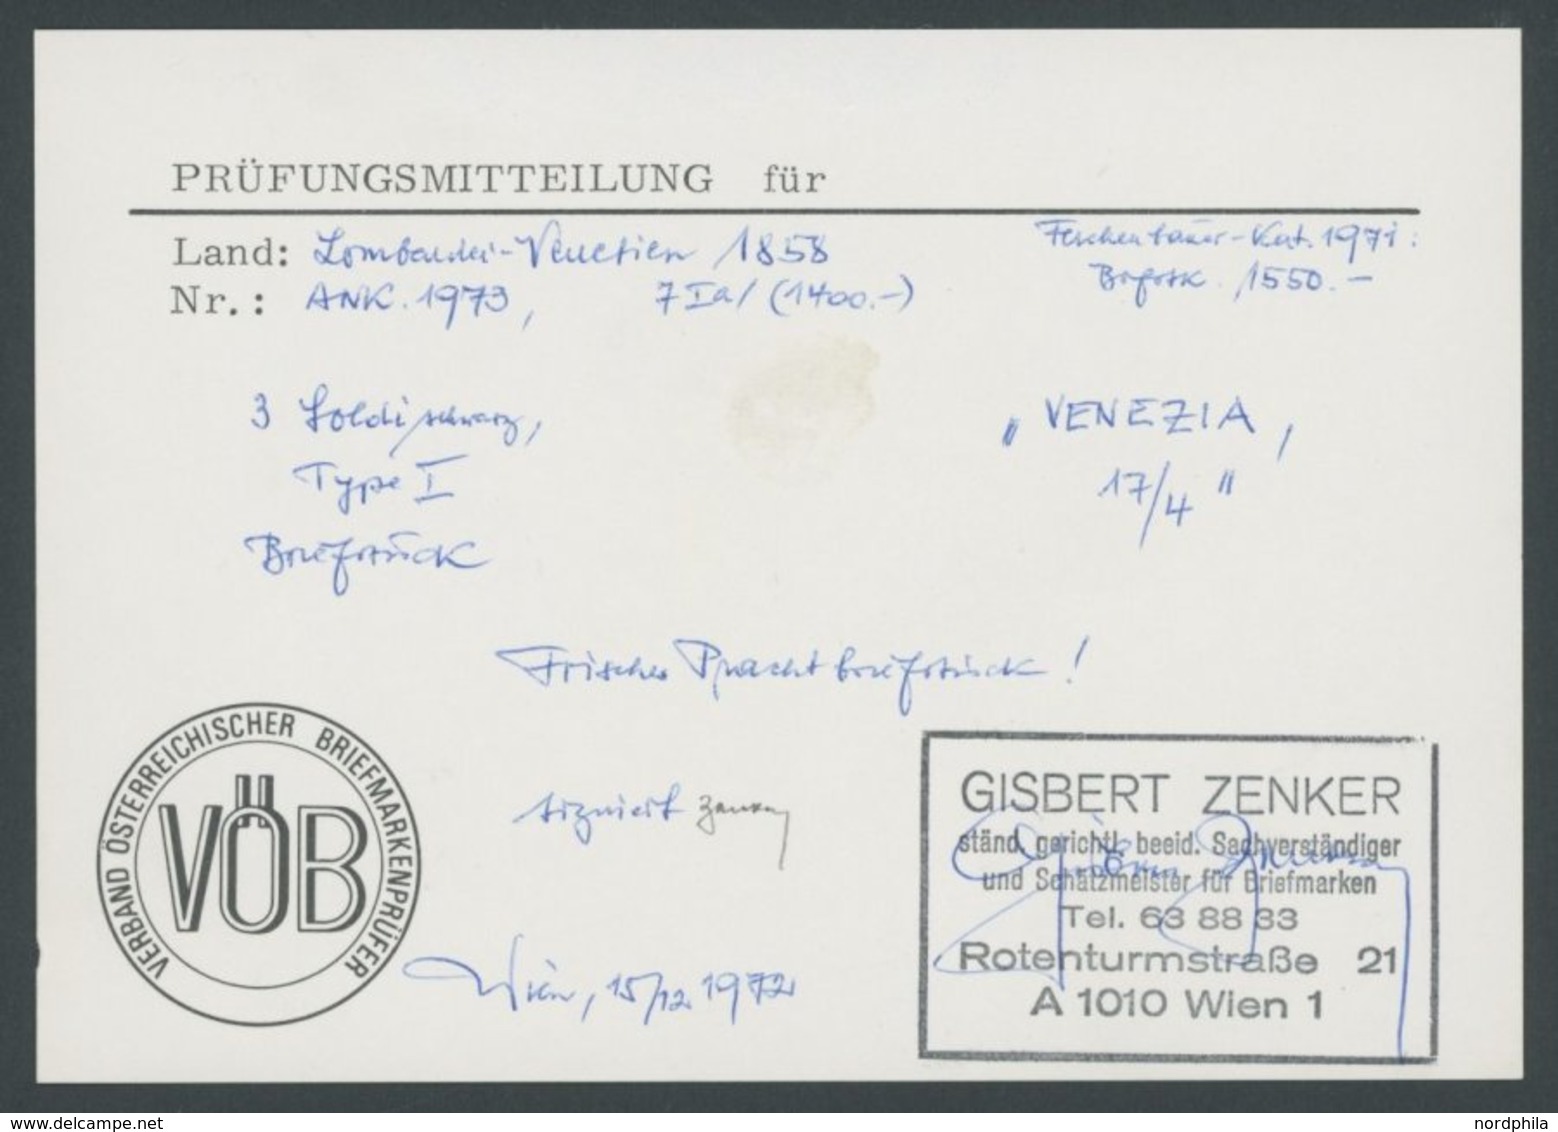 PRÜFUNGSMITTEILUNG für
Land: Lombardei-Venetien 1858
Ferchenbauer-Kat. 1971:
Nr.: ANK. 1973, 7 Ia/ (1400.-)
Brfstk. 1550.-
3 Soldi schwarz,
„VENEZIA,
Type I
17/4"
Briefstück
Frisches Prachtbriefstück!
VERBAND ÖSTERREICHISCHER BRIEFMARKENPRÜFER
VÖB
signiert Zenker
GISBERT ZENKER
ständ. gerichtl. beeid. Sachverständiger
und Schätzmeister für Briefmarken
Tel. 63 88 33
Rotenturmstraße 21
A 1010 Wien 1
Wien, 15/12 1972
www.delcampe.net
nordphila